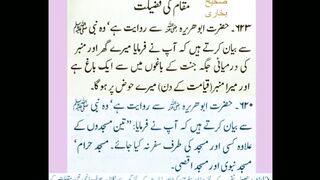 مقام کی فضیلت
صحیح
بخاری
۶۲۳۔ حضرت ابوھریرہ ﷜ سے روایت ہے' وہ نبی ﷺ
سے بیان کرتے ہیں کہ آپ نے فرمایا میرے گھر اور منبر
کی درمیانی جگہ جنت کے باغوں میں سے ایک باغ ہے
اور میرا منبر (قیامت کے دن) میرے حوض پر ہوگا۔
۶۲۰۔ حضرت ابوھریرہ ﷜ سے روایت ہے' وہ نبی ﷺ
سے بیان کرتے ہیں کہ آپ نے فرمایا: "تین مسجدوں کے
علاوہ کسی اور مسجد کی طرف سفر نہ کیا جائے۔ مسجد حرام'
مسجد نبوی اور مسجد اقصیٰ۔